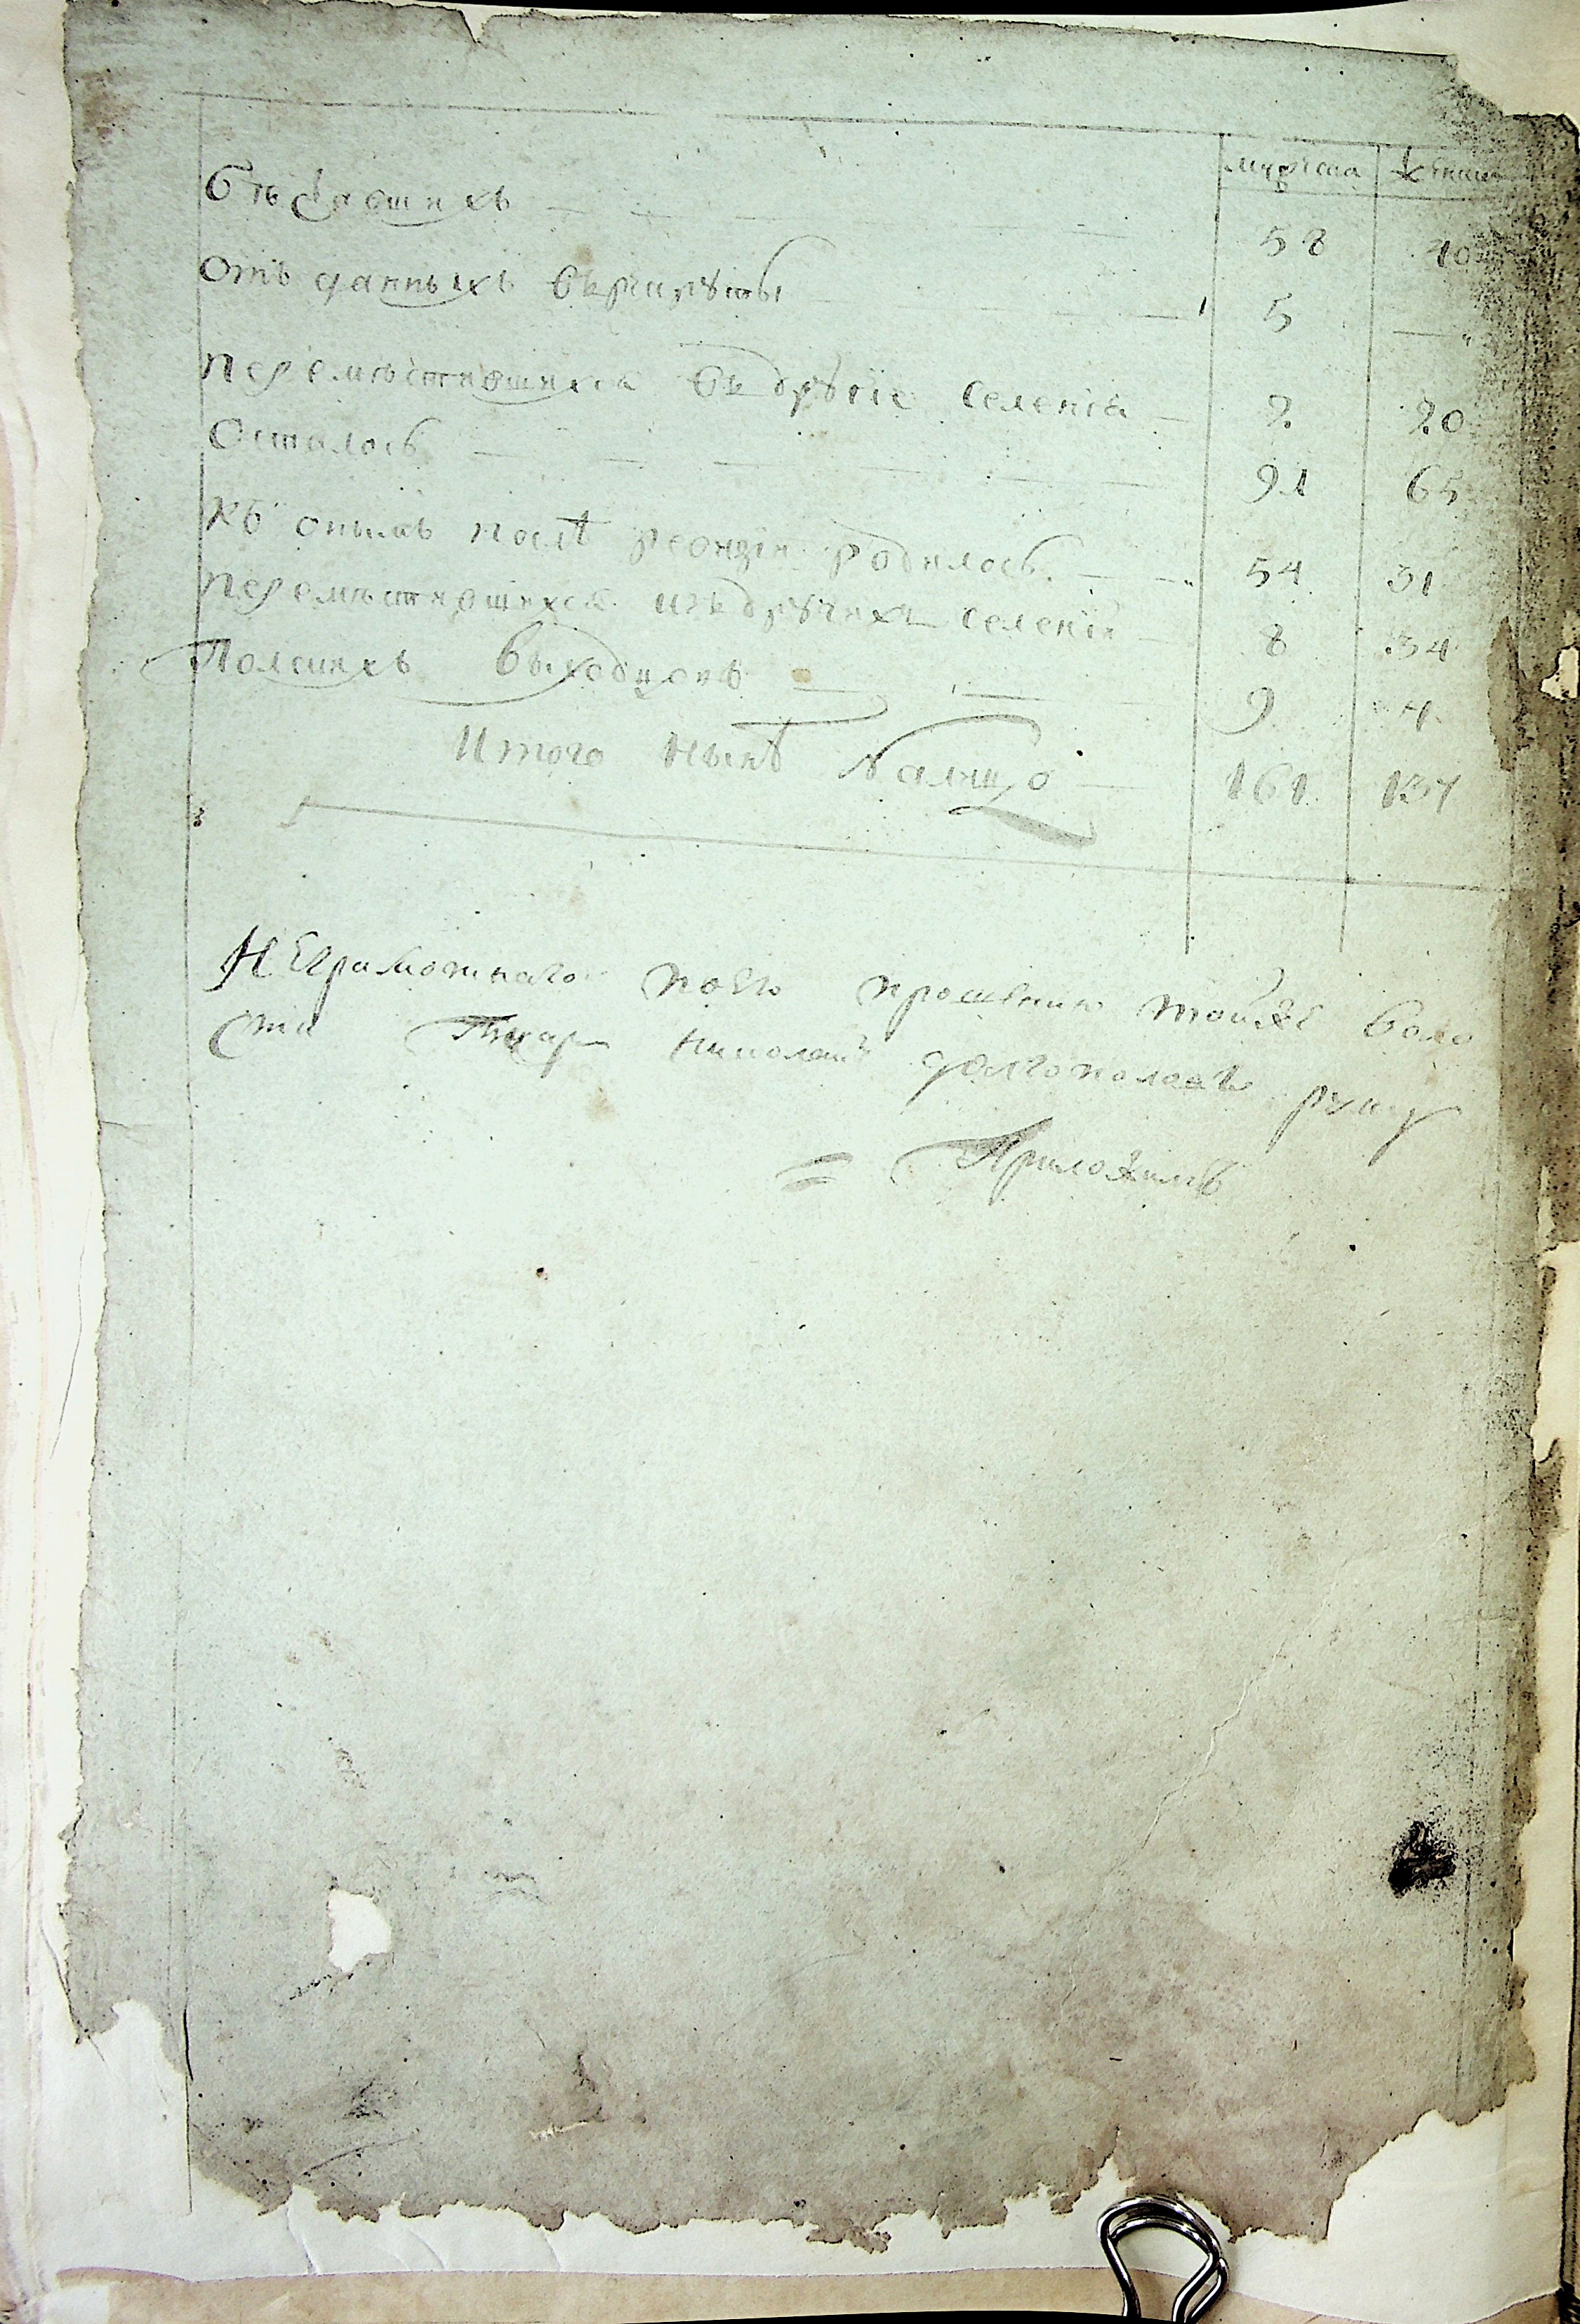 мужска женска
бѣжавшихъ — — — — 58 10
отъданныхъ въ рекруты — — — 5 —
перемѣстившихся въ другiе селенiя — 2 20
осталось — — — — 91 65
къ онымъ послѣ ревизiи родилось — — 54 31
перемѣстившихся изъ другихъ селенiй — 8 34
Полскихъ выходцовъ — — 9 7
Итого нынѣ Налицо — 161 137
Неграмотнаго поево прошению тойже воло
сти Писарь николай долгополовъ руку
= Приложилъ